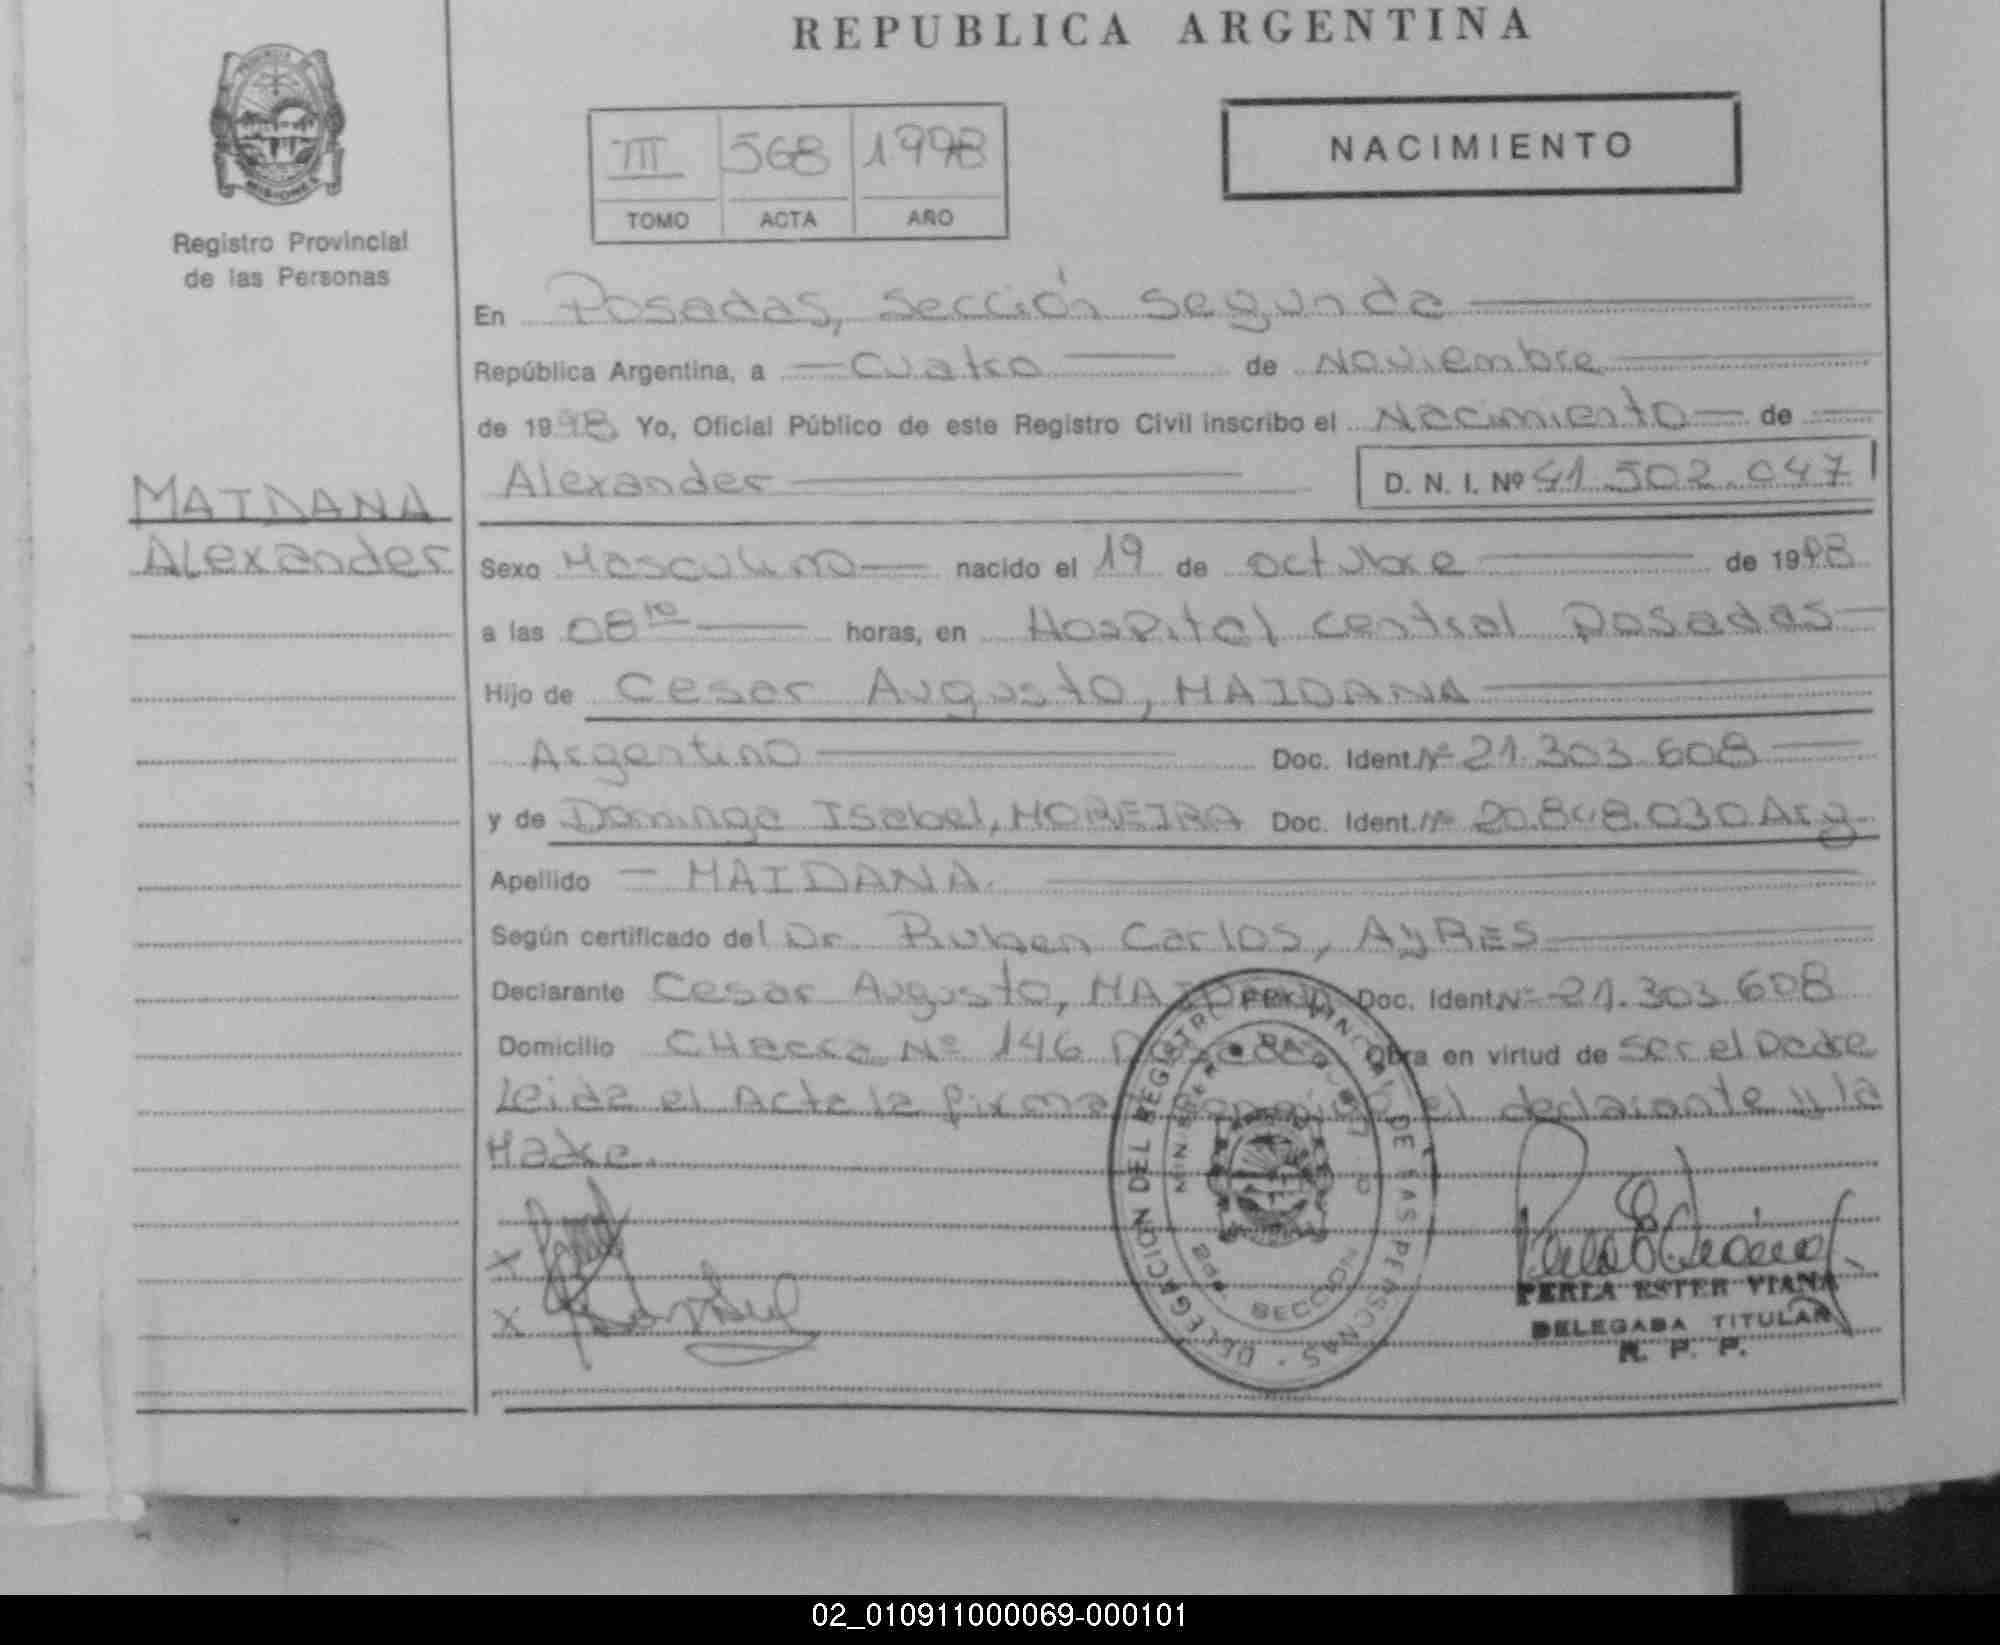 REPUBLICA ARGENTINA
PROVINCIA
MISIONES
Registro Provincial
de las Personas
III 568 1998
TOMO ACTA AÑO
NACIMIENTO
En Posadas, sección segunda
República Argentina, a cuatro de Noviembre
de 1998 Yo, Oficial Público de este Registro Civil inscribo el Nacimiento de
MAIDANA
Alexander
Alexander D. N. I. Nº 41.502.047
Sexo Masculino nacido el 19 de octubre de 1998
a las 08 10 horas, en Hospital central Posadas
Hijo de Cesar Augusto, MAIDANA
Argentino Doc. Ident. Nº 21.303.608
y de Dominga Isabel, MOREIRA Doc. Ident. Nº 20.848.030 Arg
Apellido MAIDANA
Según certificado del Dr. Ruben Carlos, AyRES
Declarante Cesar Augusto, MAIDANA Doc. Ident Nº 21.303.608
Domicilio CHacra Nº 146 Posadas Obra en virtud de ser el Padre
Leida el Acta la firman conmigo el declarante y la
Madre.
DELEGACION DEL REGISTRO PROVINCIAL DE LAS PERSONAS
SECCION
X
X
PERLA ESTER VIANA
DELEGADA TITULAR
R. P. P.
02_010911000069-000101